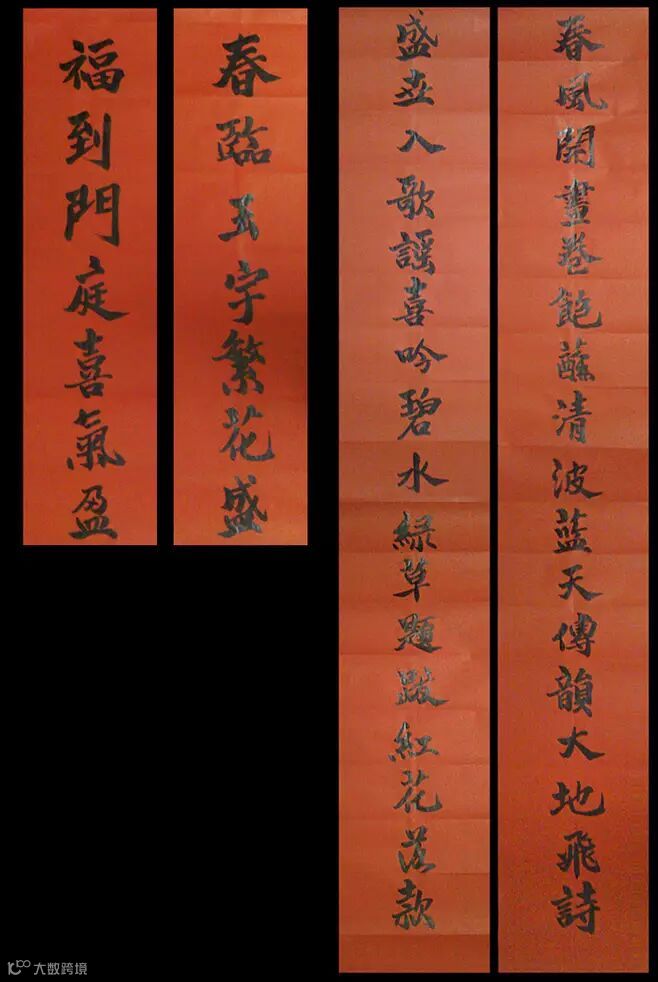 春風開畫卷飽蘸清波藍天傳韻大地飛詩
盛世入歌謡喜吟碧水綠草題跋紅花落款
春臨玉宇繁花盛
福到門庭喜氣盈
大数跨境